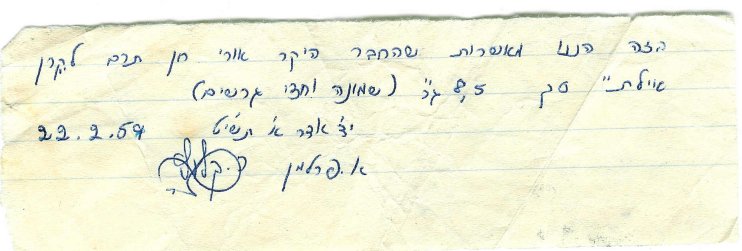 בזה הננו מאשרות שהחבר היקר אורי חן תרם לקרן
אילת" סך 8,5 גר' (שמונה וחצי גרשים)
י"ד אדר א' תשי"ט 22.2.59
א. פרלמן